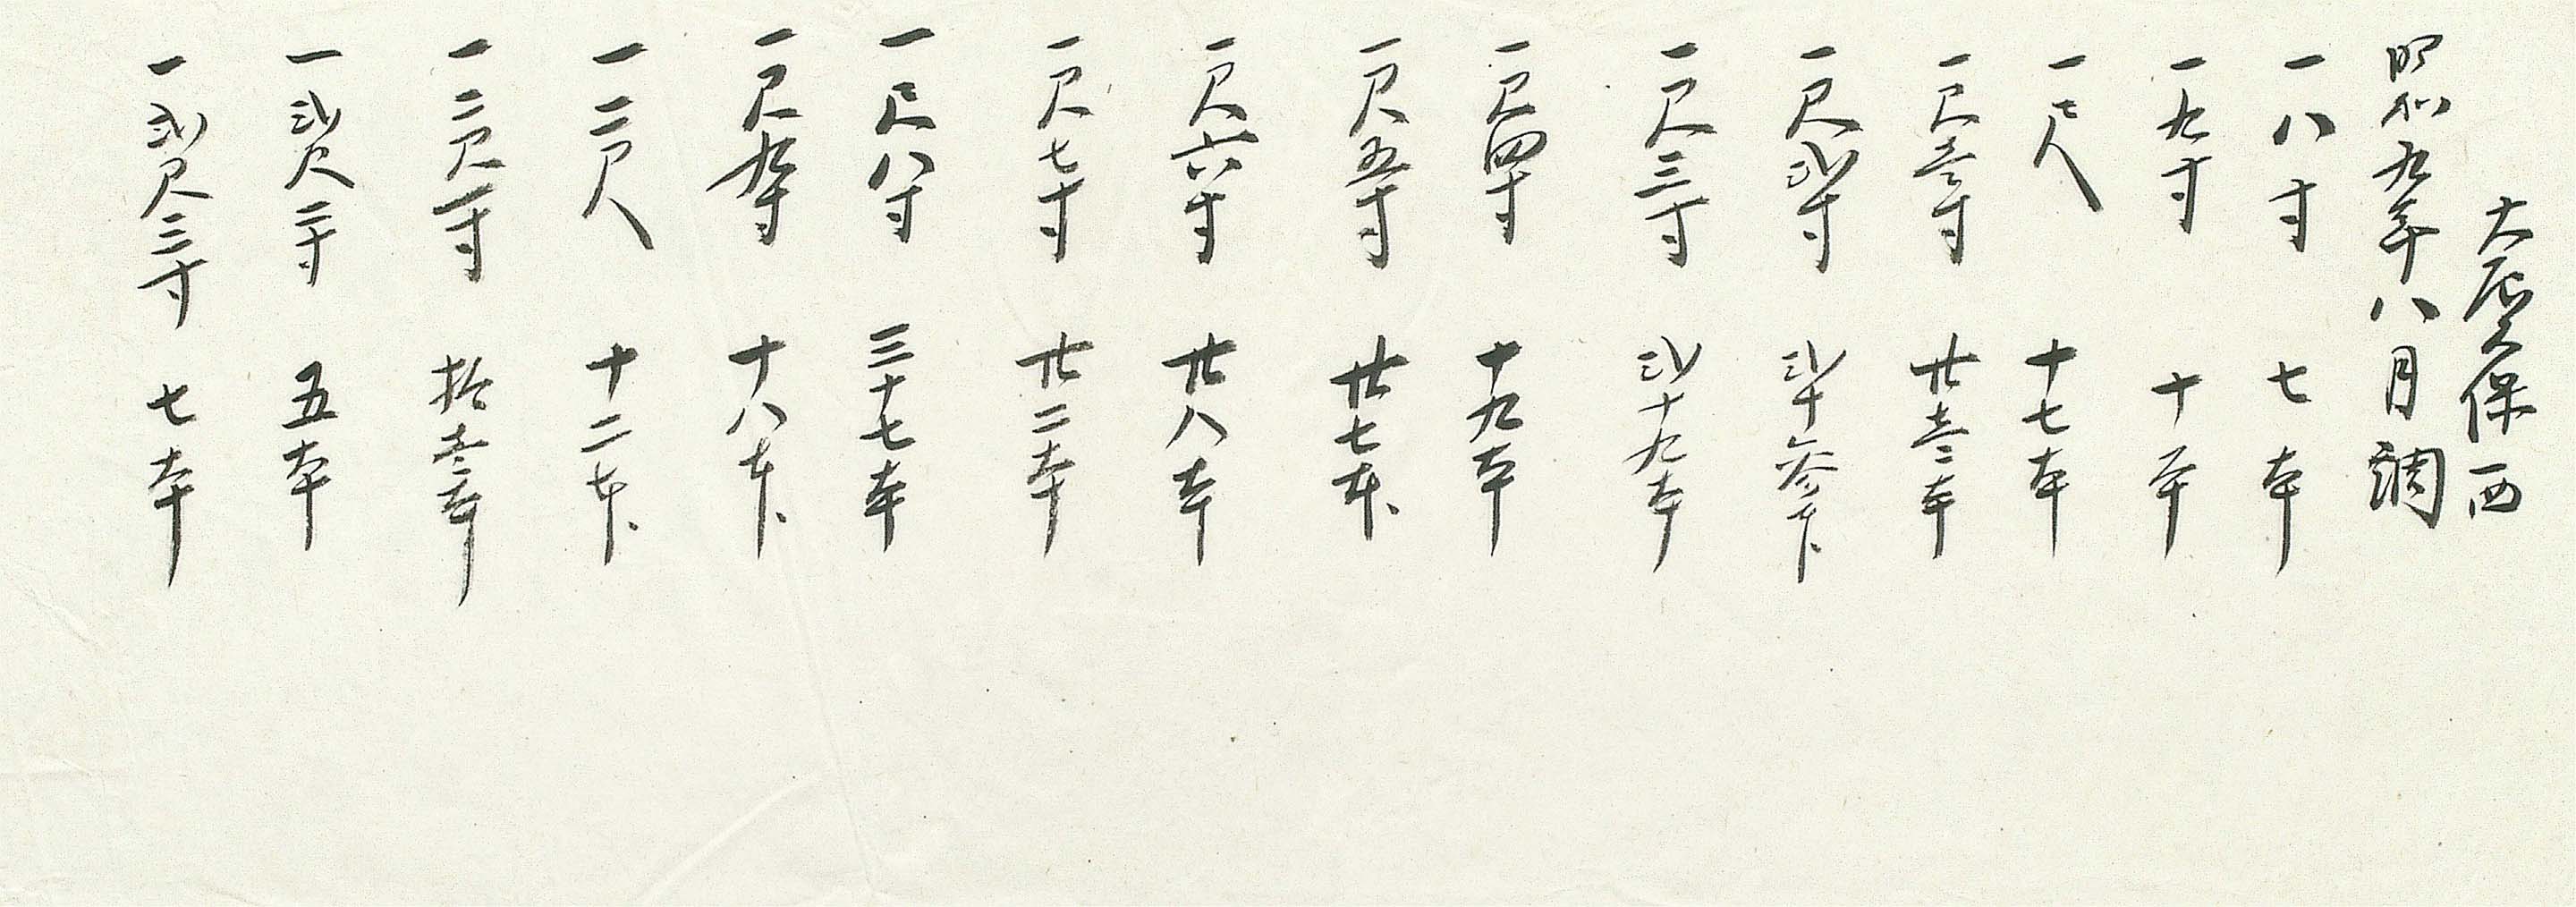 大辰久保西
昭和九年八月調
一八寸 七本
一九寸 十本
一尺 十七本
一尺壱寸 廿壱本
一尺弐寸 弐十参本
一尺三寸 弐十九本
一尺四寸 十九本
一尺五寸 廿七本
一尺六寸 廿八本
一尺七寸 廿二本
一尺八寸 三十七本
一尺九寸 十八本
一二尺 十二本
一二尺一寸 拾壱本
一弐尺二寸 五本
一弐尺三寸 七本